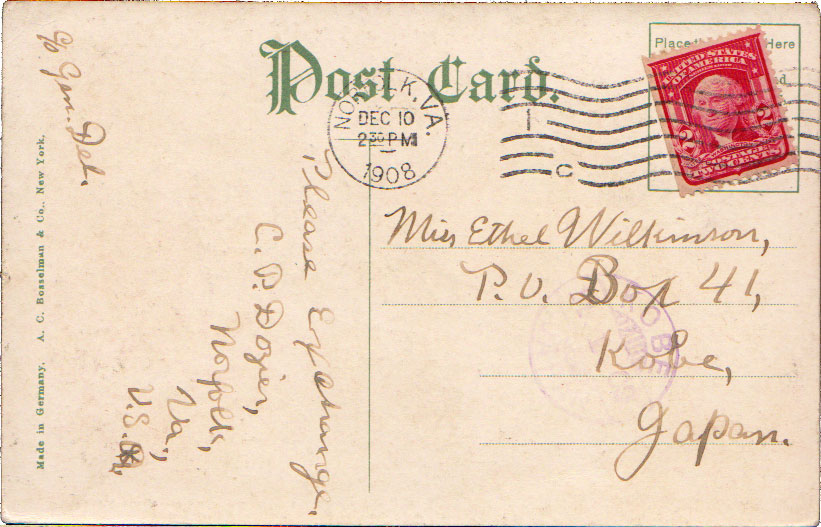 Post Card.
Place the Here
NORFOLK, VA.
DEC 10
2 30 PM
1908
C
UNITED STATES
OF AMERICA
2 2
POSTAGE
TWO CENTS
Miss Ethel Wilkinson,
P.O. Box 41,
Kobe,
Japan.
KOBE
Please Exchange.
C. P. Dozier,
Norfolk,
Va.,
U.S.A.
c/o Gen. Del.
Made in Germany. A. C. Bosselman & Co., New York.